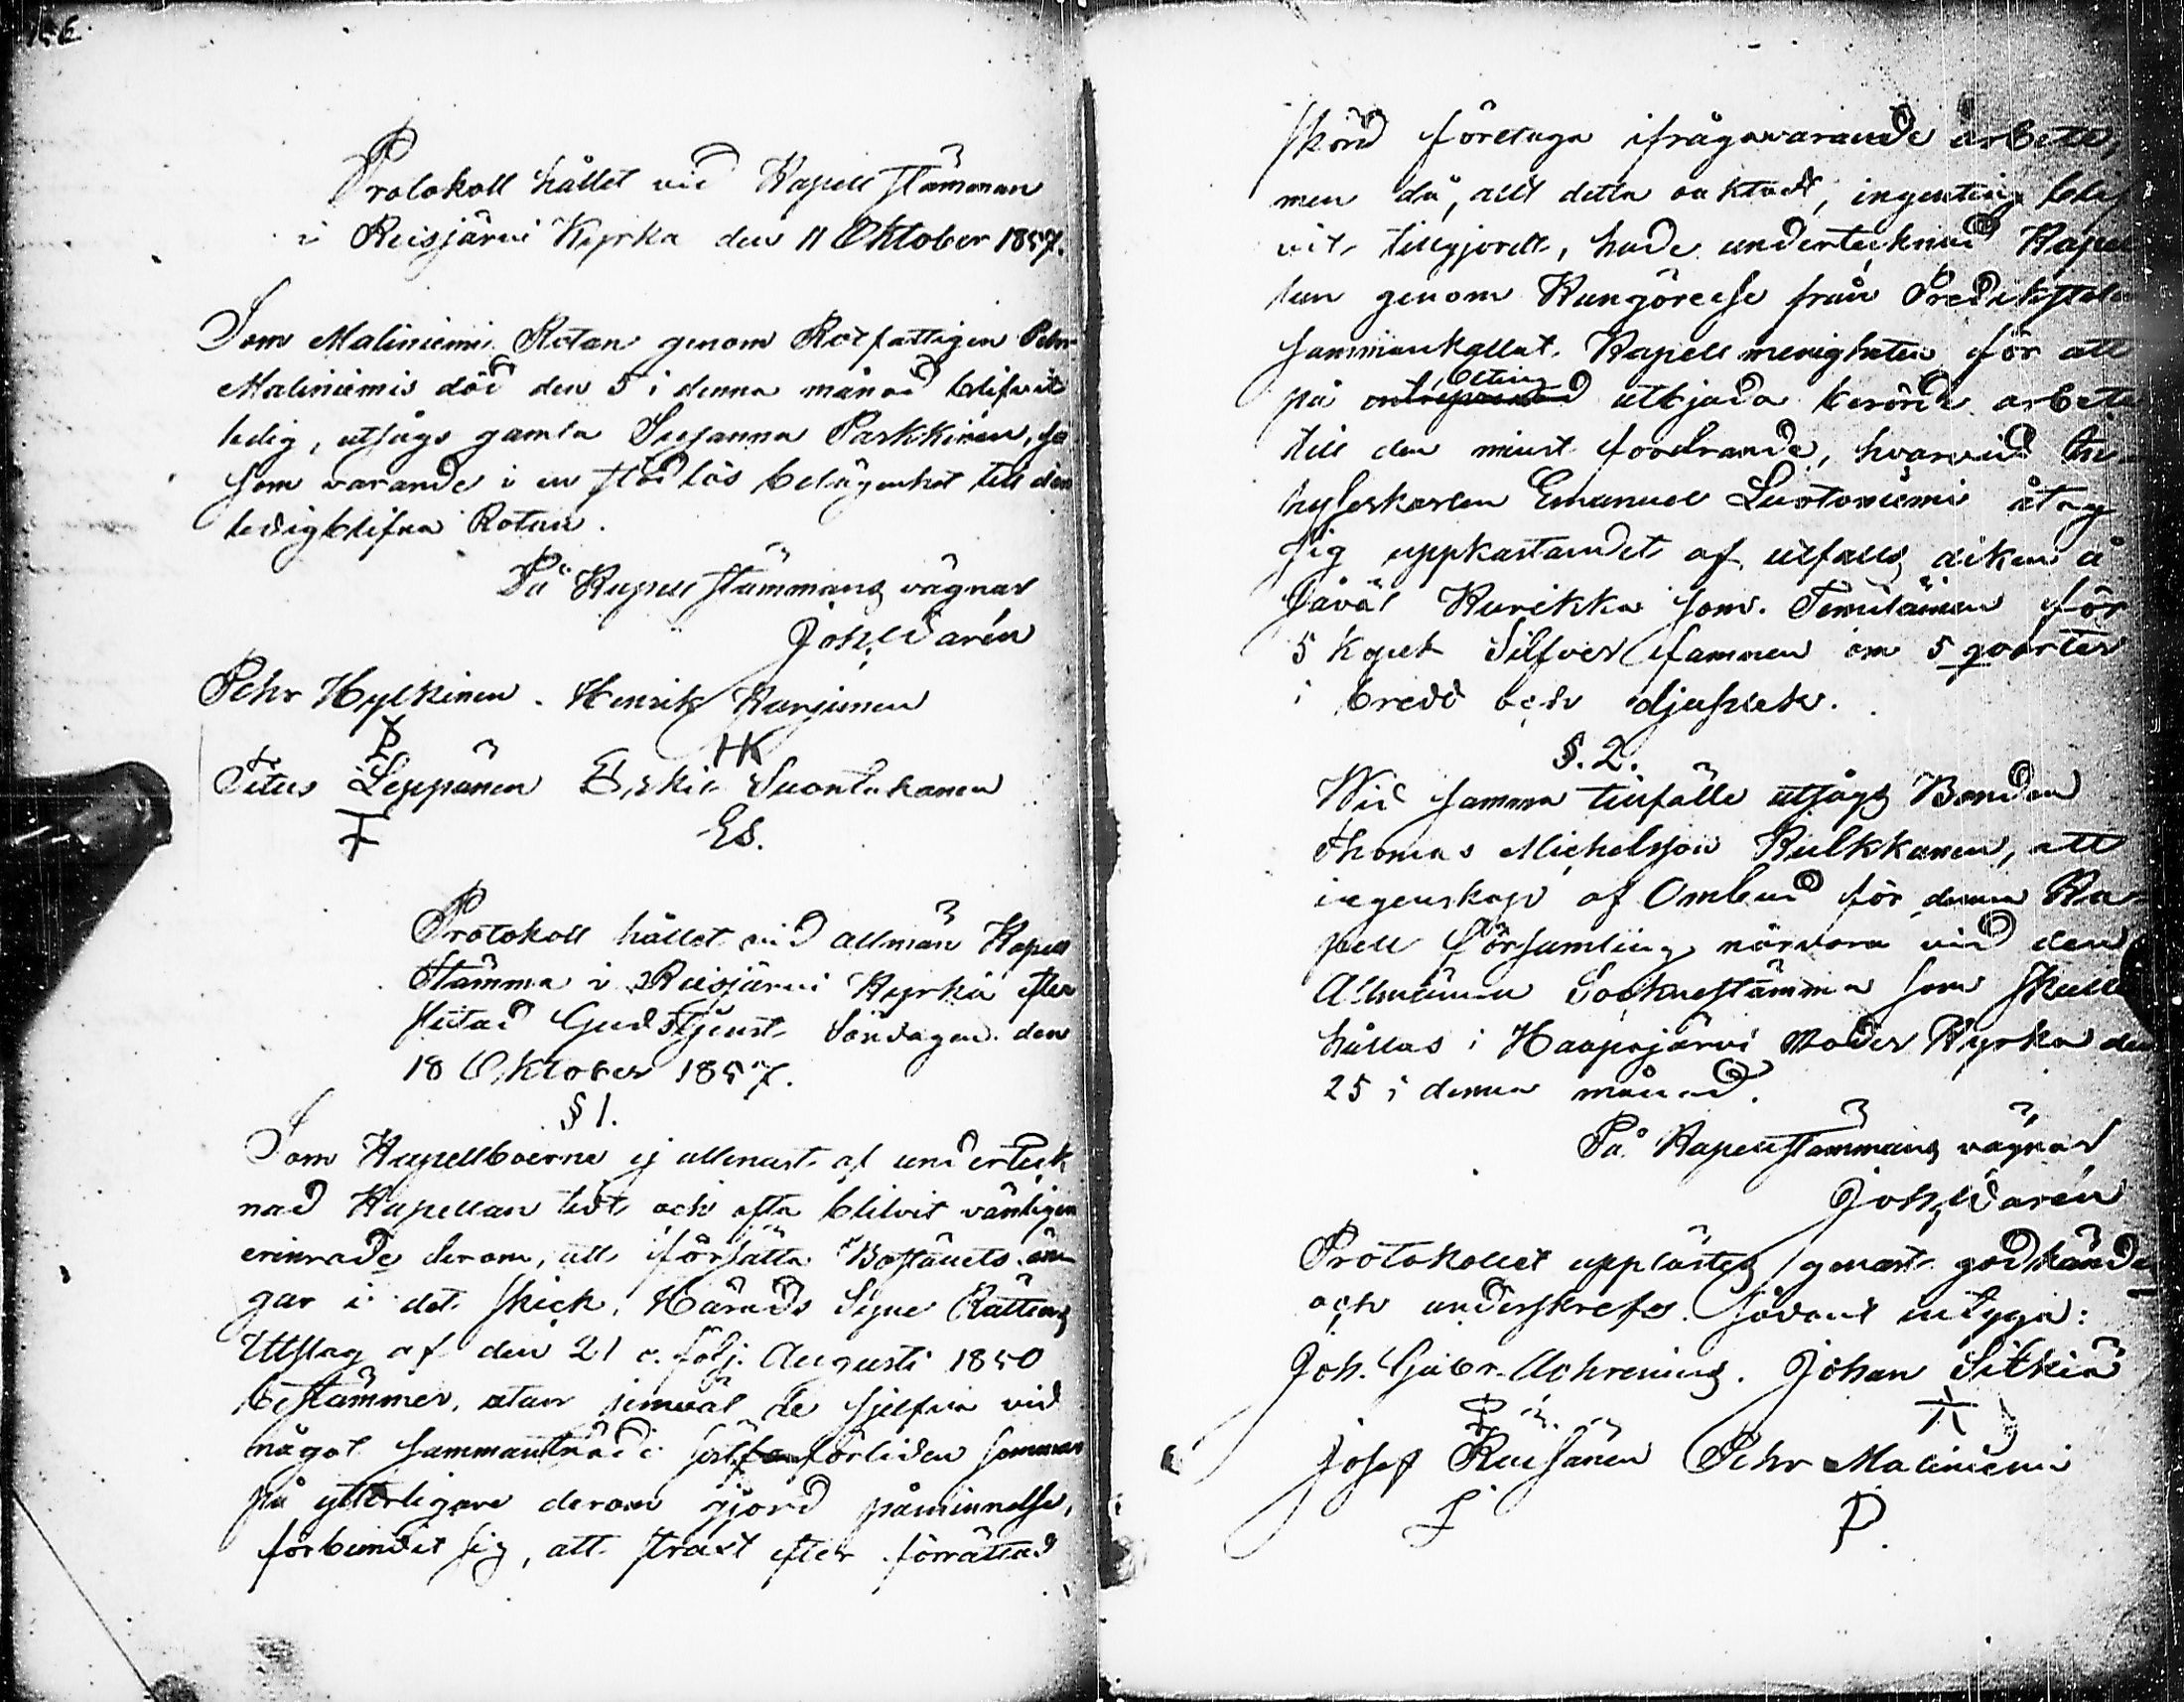 Protokoll hållet vid Kapellstämman
i Reisjärvi Kyrka den 11 Oktober 1857.
Som Maliniemi Rotan genom Rotfattigen Pehr
Maliniemis död den 5 i denna månad blifvit
ledig, utsågs gamla Susanna Parkkinen, så
som varande i en stödlös belägenhet till den
ledigblifna Rotan.
På Kapellstämmans vägnar
Joh. Warén
Pehr Hylkinen. Henrik Karjunen
P HK
Titus Leppänen Erskil Suontakanen
T ES.
Protokoll hållet vid allmän Kapell
Stämma i Reisjärvi Kyrka efter
slutad Gudstjenst Söndagen den
18 Oktober 1857.
§ 1.
Som Kapellboerne ej allenast af underteck
nad Kapellan tidt och ofta blifvit vänligen
erinrade derom, att försätta Boställets än
gar i det skick, Härads Syne Rättens
Utslag af den 21 o. följ. Augusti 1850
bestämmer, utan jemväl de sjelfva vid
något sammanträde förliden sommar
på ytterligare derom gjord påminnelse,
förbundit sig, att strax efter förrättad
skörd företaga ifrågavarande arbete,
men då, allt detta oaktadt, ingenting blif
vit tillgjordt, hade undertecknad Kapel
lan genom Kungörelse från Predikstolen
sammankallat Kapell menigheten för att
på beting utbjuda berörde arbete
till den minst fordrande, hvarvid In-
hyseskarlen Emanuel Luotoniemi åtog
sig uppkastandet af utfalls diken å
såväl Kurikka som för
5 kopek Silfver famnen om 5 qvarter
i bredd och djuplek.
§. 2.
Wid samma tillfälle utsågs Bonden
Thomas Michelsson Kulkkanen, att
i egenskap af Ombud för denna Ka-
pell Församling närvara vid den
Allmänna Sockne stämma som skulle
hållas i Haapajärvi Moder Kyrka den
25 i denna månad.
På Kapellstämmans vägnar
Joh. Warén
Protokollet upplästes, genast godkändes
och underskrefs. Sådant intyga:
Joh. Gabr. Achrenius. Johan Sitkiä
Josef Kuusänen Pehr Maliniemi
P.